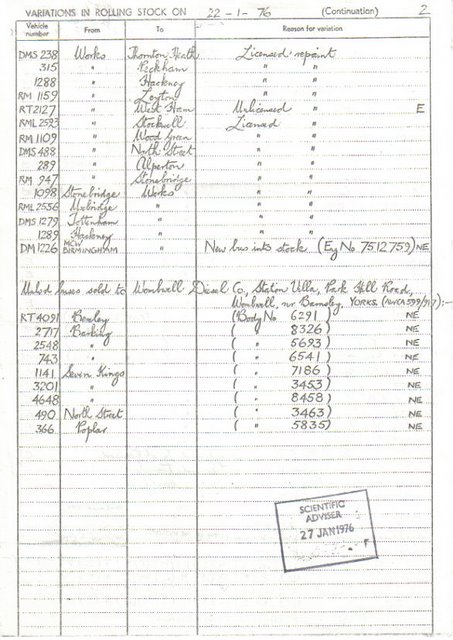 VARIATIONS IN ROLLING STOCK ON 22-1-76 (Continuation) 2
Vehicle number From To Reason for variation
DMS 238 Works Thornton Heath Licensed repaint
315 " Peckham " "
1288 " Hackney " "
RM 1159 " Leyton " "
RT2127 " West Ham Unlicensed " E
RML 2593 " Stockwell Licensed "
RM 1109 " Wood Green " "
DMS 488 " North Street " "
289 " Alperton " "
RM 947 " Stonebridge " "
1098 Stonebridge Works " "
RML 2556 Uxbridge " " "
DMS 1279 Tottenham " " "
1289 Hackney " " "
DM 1226 MCW BIRMINGHAM " New bus into stock (Eng No 7512759) NE
buses sold to Wombwell Diesel Co, Station Villa, Park Hill Road,
Wombwell, nr Barnsley. YORKS.
4091 Bexley (Body No 6291) NE
2717 Barking ( " 8326) NE
2548 " ( " 5693) NE
743 " ( " 6541) NE
1141 Seven Kings ( " 7186) NE
3201 " ( " 3453) NE
4648 " ( " 8458) NE
490 North Street ( " 3463) NE
366 Poplar ( " 5835) NE
SCIENTIFIC
ADVISER
27 JAN 1976